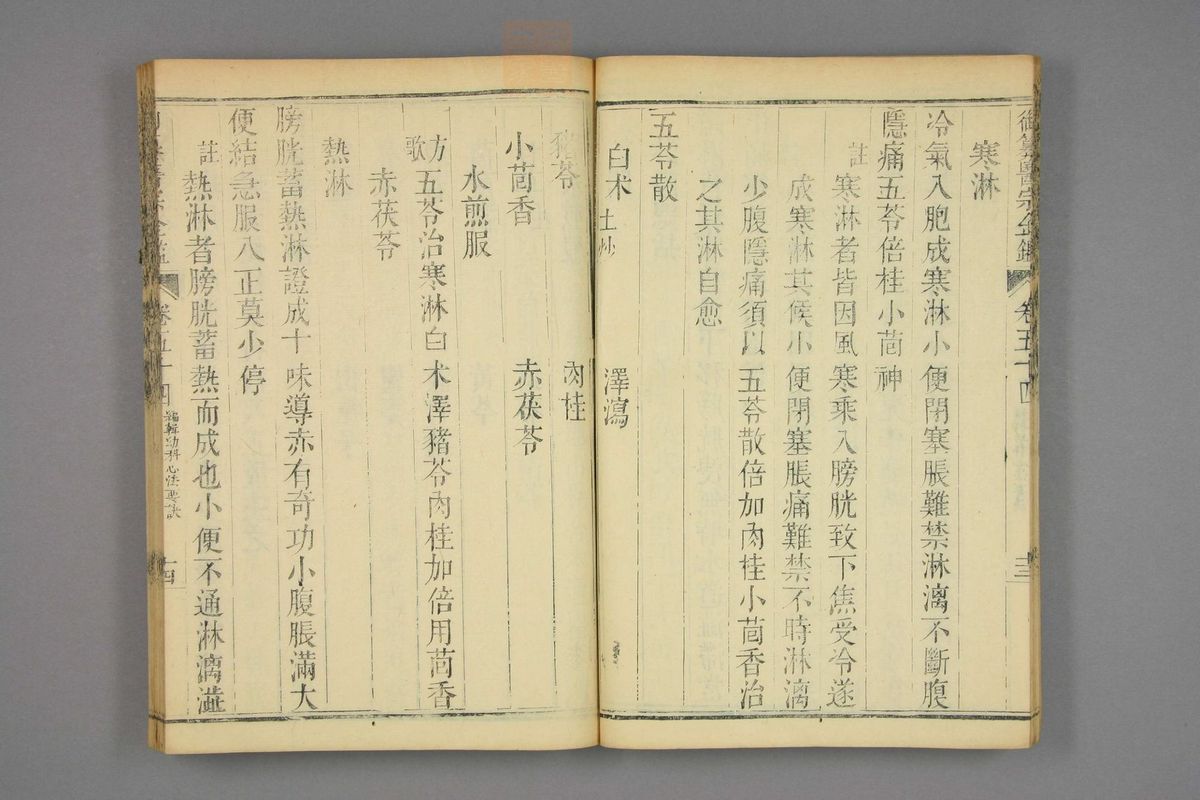 御纂醫宗金鑑 卷五十四 十三
寒淋
冷氣入胞成寒淋小便閉塞脹難禁淋漓不斷腹
隱痛五苓倍桂小茴神
註 寒淋者皆因風寒乘入膀胱致下焦受冷遂
成寒淋其候小便閉塞脹痛難禁不時淋漓
少腹隱痛須以五苓散倍加肉桂小茴香治
之其淋自愈
五苓散
白术 土炒 澤瀉
豬苓 肉桂
小茴香 赤茯苓
水煎服
方歌 五苓治寒淋白术澤豬苓肉桂加倍用茴香
赤茯苓
熱淋
膀胱蓄熱淋證成十味導赤有奇功小腹脹滿大
便結急服八正莫少停
註 熱淋者膀胱蓄熱而成也小便不通淋漓澁
卷五十四 編輯幼科心法要訣 十四